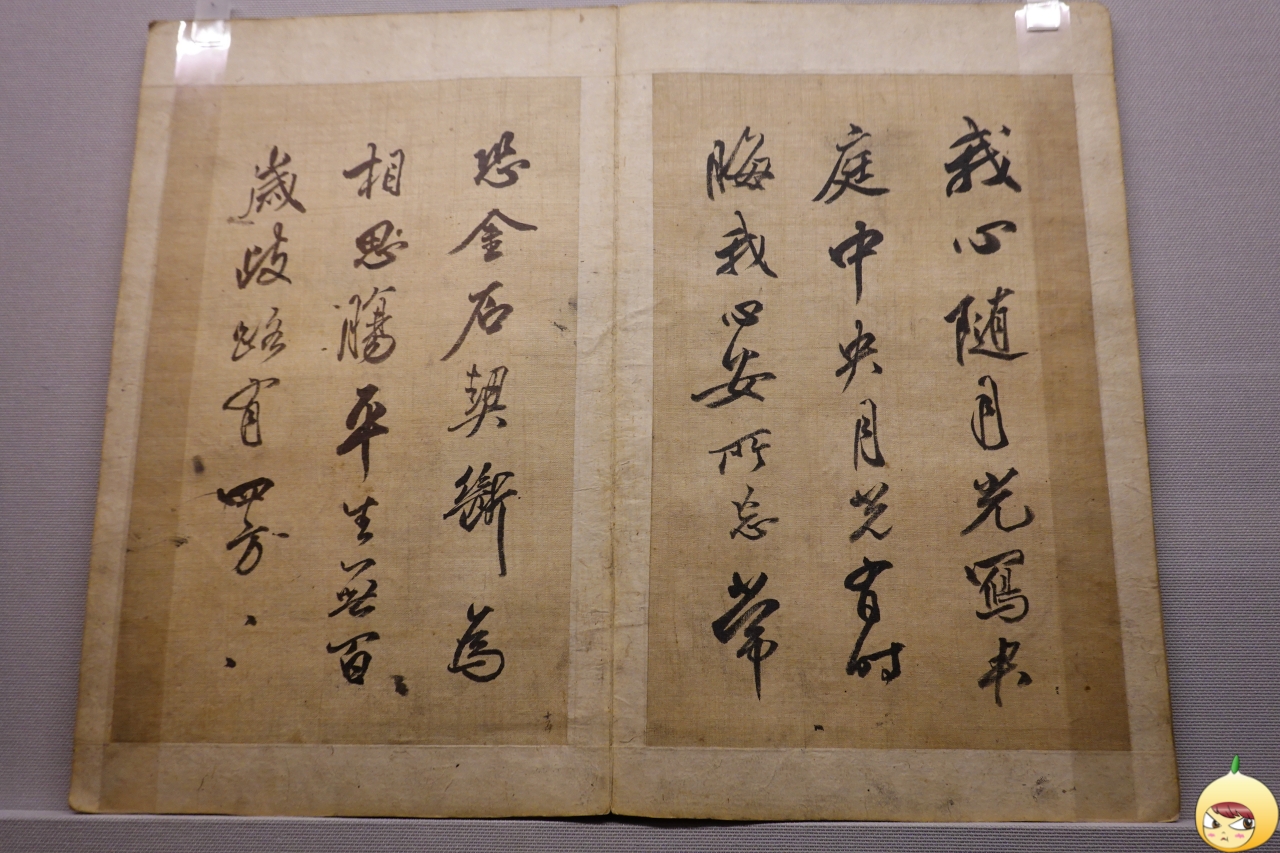 我心随月光寫出
庭中央月光有时
晦我心安所忘常
恐金石契斷為
相思腸平生無百
歲歧路有四方